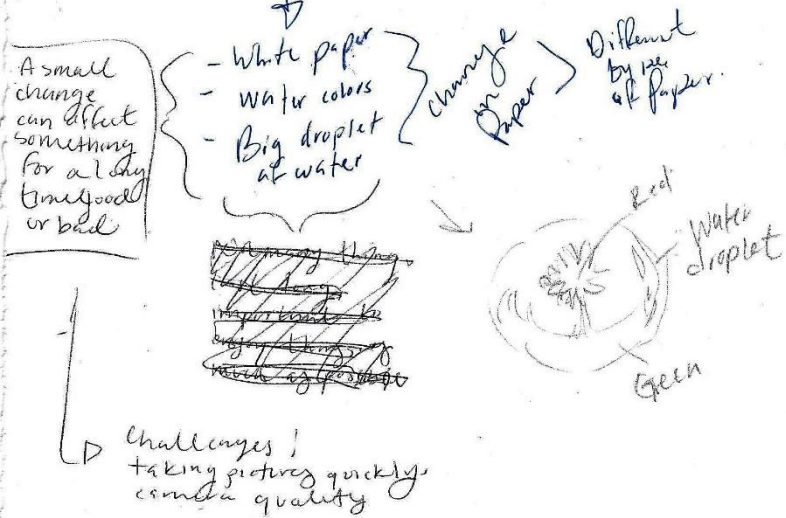 A small
change
can affect
something
for a long
time good
or bad
- White paper
- water colors
- Big droplet
of water
change
in
Paper
Different
type
of Paper.
Red
Water
droplet
Green
important to
enjoy things
much as possible
Challenges!
taking pictures quickly.
camera quality